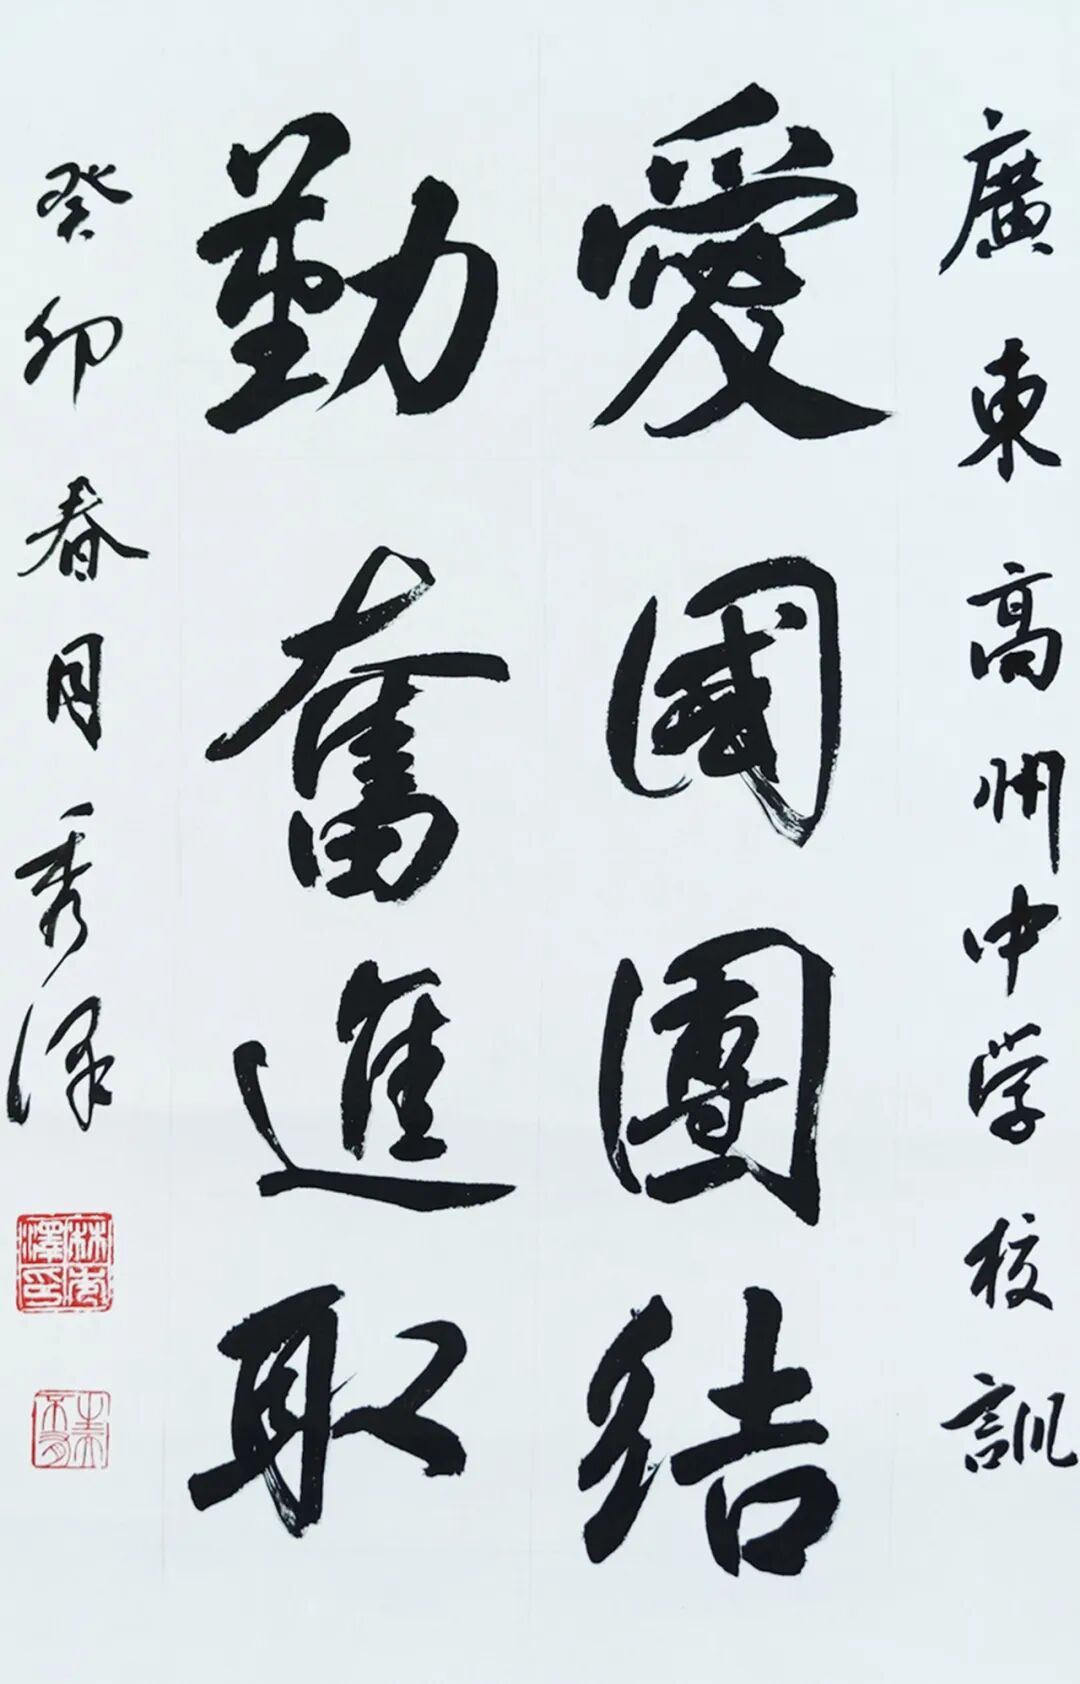 廣東高州中学校訓
愛國團結
勤奮進取
癸卯春月秀泽
林秀澤印